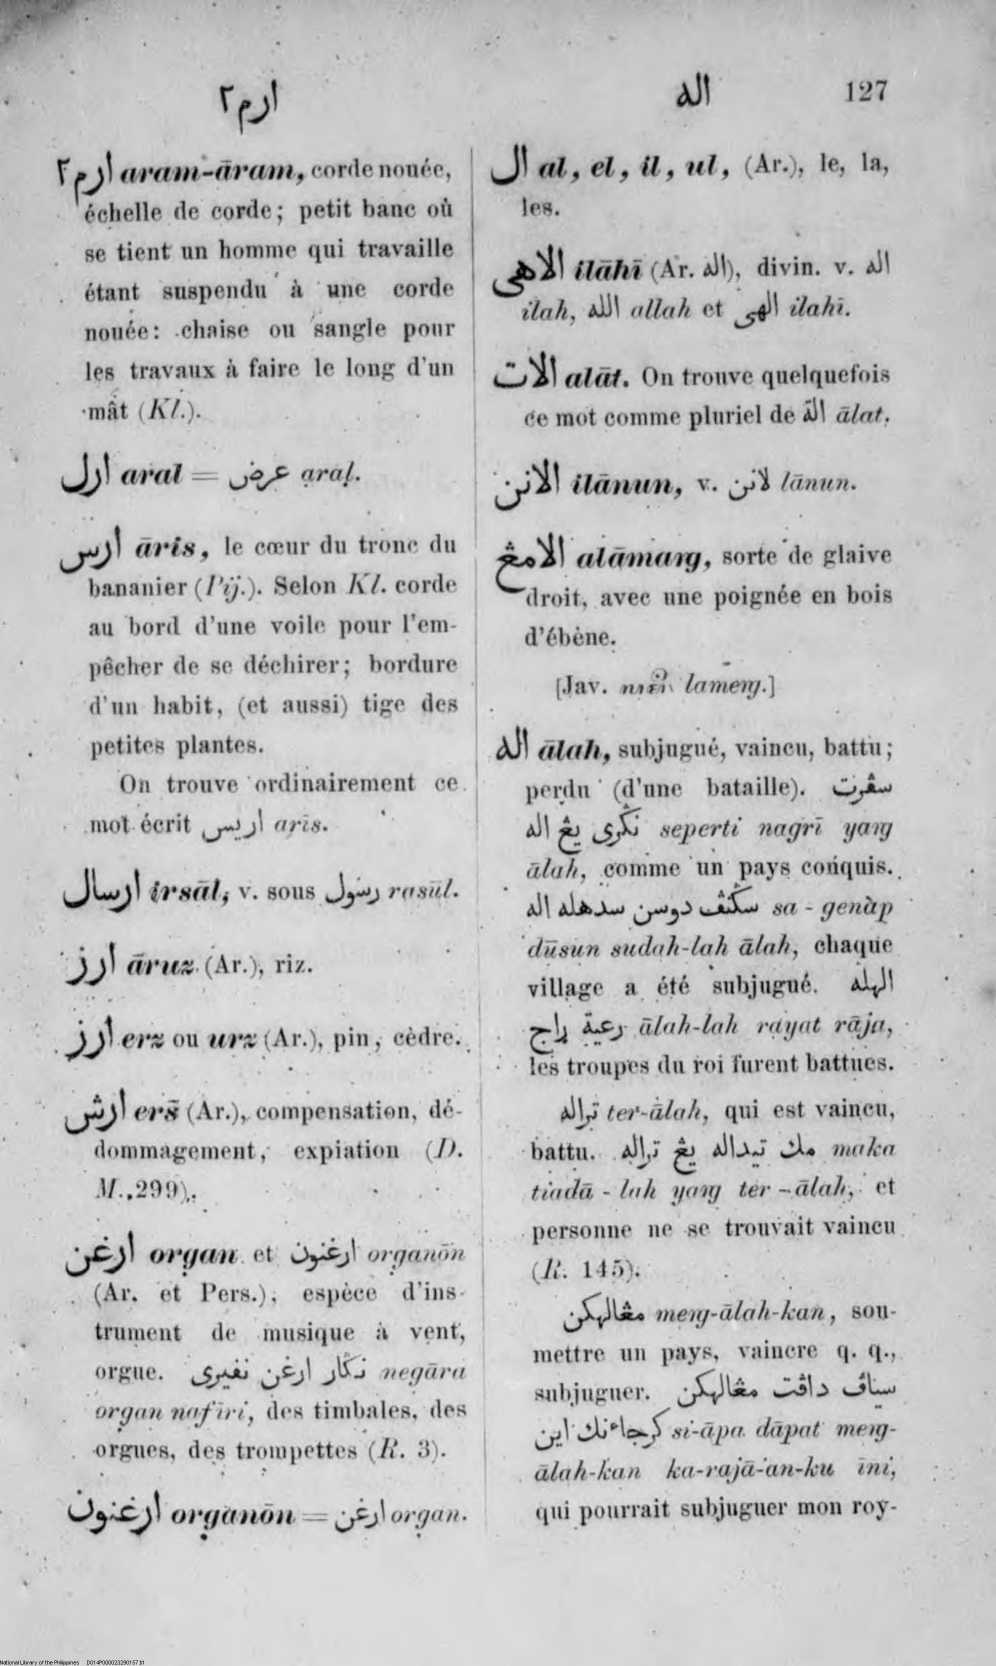 ارم٢
اله 127
ارم٢ aram-āram, corde nouée,
échelle de corde; petit banc où
se tient un homme qui travaille
étant suspendu à une corde
nouée: chaise ou sangle pour
les travaux à faire le long d'un
mât (Kl.).
ارل aral = عرض araḷ.
ارس āris, le cœur du tronc du
bananier (Pij.). Selon Kl. corde
au bord d'une voile pour l'em-
pêcher de se déchirer; bordure
d'un habit, (et aussi) tige des
petites plantes.
On trouve ordinairement ce
mot écrit اريس arīs.
ارسال irsāl, v. sous رسول rasūl.
ارز āruz (Ar.), riz.
ارز erz ou urz (Ar.), pin, cèdre.
ارش erš (Ar.), compensation, dé-
dommagement, expiation (D.
M., 299).
ارغن organ et ارغنون organōn
(Ar. et Pers.), espèce d'ins-
trument de musique à vent,
orgue. نݢار ارغن نفيرى negāra
organ nafīri, des timbales, des
orgues, des trompettes (R. 3).
ارغنون organōn = ارغن organ.
ال al, el, il, ul, (Ar.), le, la,
les.
الاهى ilāhī (Ar. اله), divin. v. اله
ilah, الله allah et الهى ilahī.
الات alāt. On trouve quelquefois
ce mot comme pluriel de الة ālat.
الانن ilānun, v. لانن lānun.
الامڠ alāmaŋ, sorte de glaive
droit, avec une poignée en bois
d'ébène.
[Jav. lameŋ.]
اله ālah, subjugué, vaincu, battu;
perdu (d'une bataille). سڤرت
نݢرى يڠ اله seperti nagrī yaŋ
ālah, comme un pays conquis.
سݢنڤ دوسن سدهله اله sa-genàp
dūsun sudah-lah ālah, chaque
village a été subjugué. الهله
رعية راج ālah-lah rayat rāja,
les troupes du roi furent battues.
تراله ter-ālah, qui est vaincu,
battu. مك تيداله يڠ تراله maka
tiadā-lah yaŋ ter-ālah, et
personne ne se trouvait vaincu
(R. 145).
مڠالهكن meŋ-ālah-kan, sou-
mettre un pays, vaincre q. q.,
subjuguer. سياڤ داڤت مڠالهكن
كرجاءنك اين si-āpa dāpat meŋ-
ālah-kan ka-rajā-an-ku īni,
qui pourrait subjuguer mon roy-
National Library of the Philippines